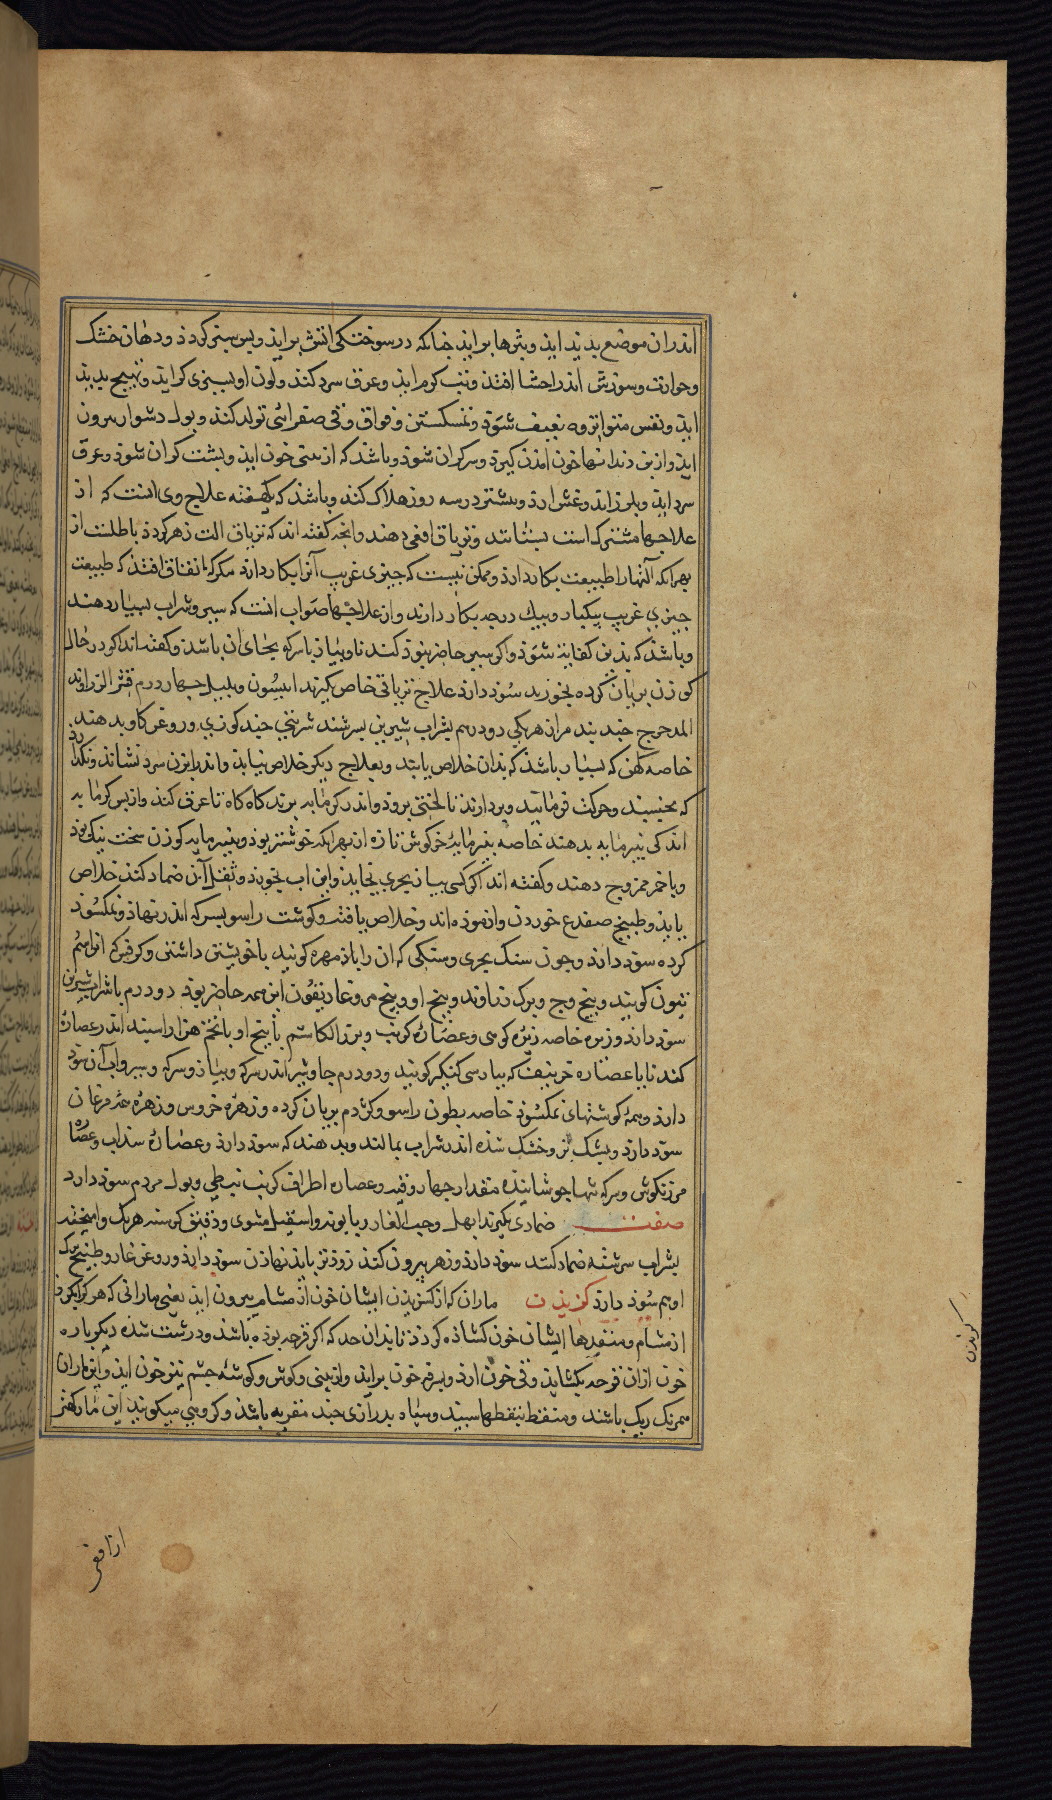 اندران موضع بدید اید وبثرها براید جنانکه در سوختکی اتش براید وبس سبز کردد ودهان خشک
وحرارت وسوزش اندر احشا افتد وتب کرم اید وعرق سرد کند ولون او بسبزی کراید وتهیج بدید
اید ونفس متواتر وضعیف شود وفواق وقی صفرائی تولد کند وبول دشوار بیرون
اید واز بن دندانها خون امدن کیرد وسر کران شود وباشد که از بینی خون اید وبشت کران شود وعرق
سرد اید وبلرزاند وغش ارد وبیشتر در سه روز هلاک کند وباشد که بهفته علاج وی انست که از
علاجها مشترک است بشتابند وتریاق افعی دهند وانجه کفته اند که تریاق الت زهر کردد باطلست از
بهر انکه التهارا طبیعت بکار دارد وممکن نیست که جیزی غریب آنرا بکار دارد مکر که باتفاق افتد که طبیعت
جیزی غریب بیکبار وبیک درجه بکار دارند واز علاجها صواب انست که سیر وشراب بسیار دهند
وباشد که بدین کفایت شود واکر سیر حاضر نبود کندنا وبیاز باسرکه بجای ان باشد وکفته اند اکر در حال
کوزن بریان کرده بخورند سود دارد علاج تریاقی خاص کیرند انیسون وبلبل جهار درم قشر الزراوند
المدحرج جند بیدستر از هر یکی دو درم بشراب شیرین بسرشند شربتی جند کوزی وروغن کاو بدهند
خاصه کهن که بسیار باشد که بدان خلاص یابند وبعلاج دیکر خلاص نیابد واندر ابزن سرد نشاند ونکذارند
که بخسبند وحرکت فرمایند وبردارند تا لختی برود واندر کرمابه برند کاه کاه تا عرق کند واز بس کرمابه
اندکی بنیرمایه بدهند خاصه بنیرمایه خرکوش تازه از بهر انکه خوشتر بود وبنیرمایه کوزن سخت نیکو بود
وباخمر ممزوج دهند وکفته اند اکر کسی بیاز بحری بخاید واین اب بخورد وثقل آن ضماد کند خلاص
یابد وطبیخ ضفدع خوردن وازموده اند وخلاص یافت وکوشت راسو بسرکه اندر نهاذ ونمکسود
کرده سود دارد وجون سنک بحری وسنکی که ان را باذ مهره کویند با خویشتن داشتن
کویند وبیخ وج وبرک زراوند وبیخ او وبیخ مرو غاریقون این همه حاضر بود دو درم با شراب شیرین
سود دارد وزیره خاصه زیره کوهی وعصاره کرنب وبزر الکاشم با بیخ او یا تخم هزار اسبند اندر عصاره
کندنا یا عصاره خرنوب که ببارسی کنکر کویند ودو درم جاوشیر اندر سرکه وبیاز وسرکه وسیر واب آن سود
دارد وهمه کوشتهای نمکسود خاصه بطون راسو وکژدم بریان کرده وزهره خروس وزهره همه مرغان
سود دارد وبشک بز وخشک شده اندر شراب بمالند وبدهند که سود دارد وعصاره سذاب وعصاره
مرزنکوش وسرکه تنها جوشانیده مقدار جهار وقیه وعصاره اطراف کرنب نبطی وبول مردم سود دارد
صفت ضمادی بکیرند ابهل وحب الغار وبابونه واسقیل مشوی ودقیق کرسنه هر یک وامیخته
بشراب سرشته ضماد کنند سود دارد وزهر بیرون کند زود تر باید نهادن سود دارد وروغن غار وطبیخ برک
او هم سود دارد کزیدن ماران که از کزیدن ایشان خون از مشام بیرون اید یعنی مارانی که هر کرا بکزد
از مشام ومنفدها ایشان خون کشاده کردد تا بدان حد که اکر قرحه بوده باشد ودرست شده دیکر باره
خون ازان قرحه بکشاید وقی خون ارد وبسرفه خون براید واز بینی وکوش وکوشه جشم نیز خون اید واین ماران
همرنک ریک باشند ومنقط بنقطها سبید وسیاه بدرازی جند مقربه باشد وکروهی میکویند این مار کهتر
از افعی
کزیدن